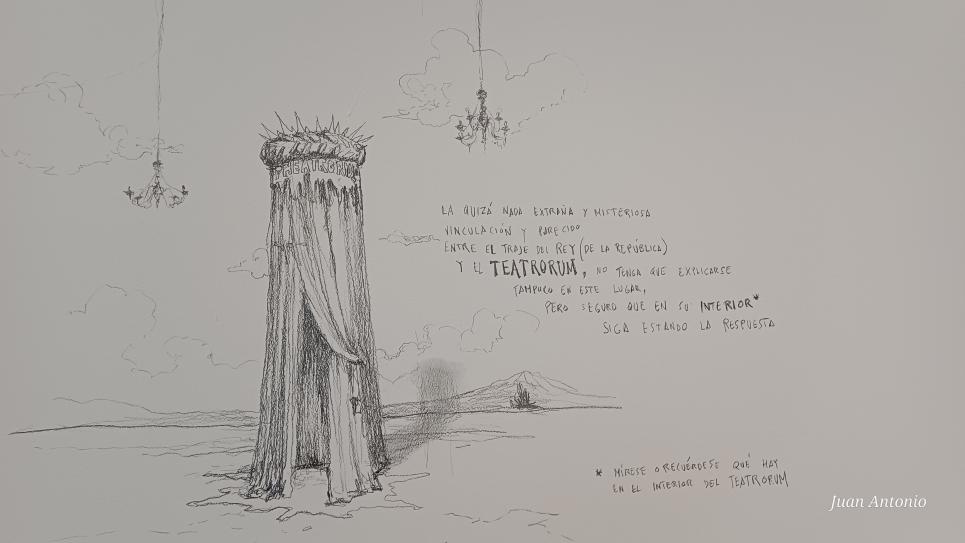 THEATRORUM
LA QUIZÁ NADA EXTRAÑA Y MISTERIOSA
VINCULACIÓN Y PARECIDO
ENTRE EL TRAJE DEL REY (DE LA REPÚBLICA)
Y EL TEATRORUM, NO TENGA QUE EXPLICARSE
TAMPOCO EN ESTE LUGAR,
PERO SEGURO QUE EN SU INTERIOR*
SIGA ESTANDO LA RESPUESTA
* MÍRESE O RECUÉRDESE QUÉ HAY
EN EL INTERIOR DEL TEATRORUM
Juan Antonio